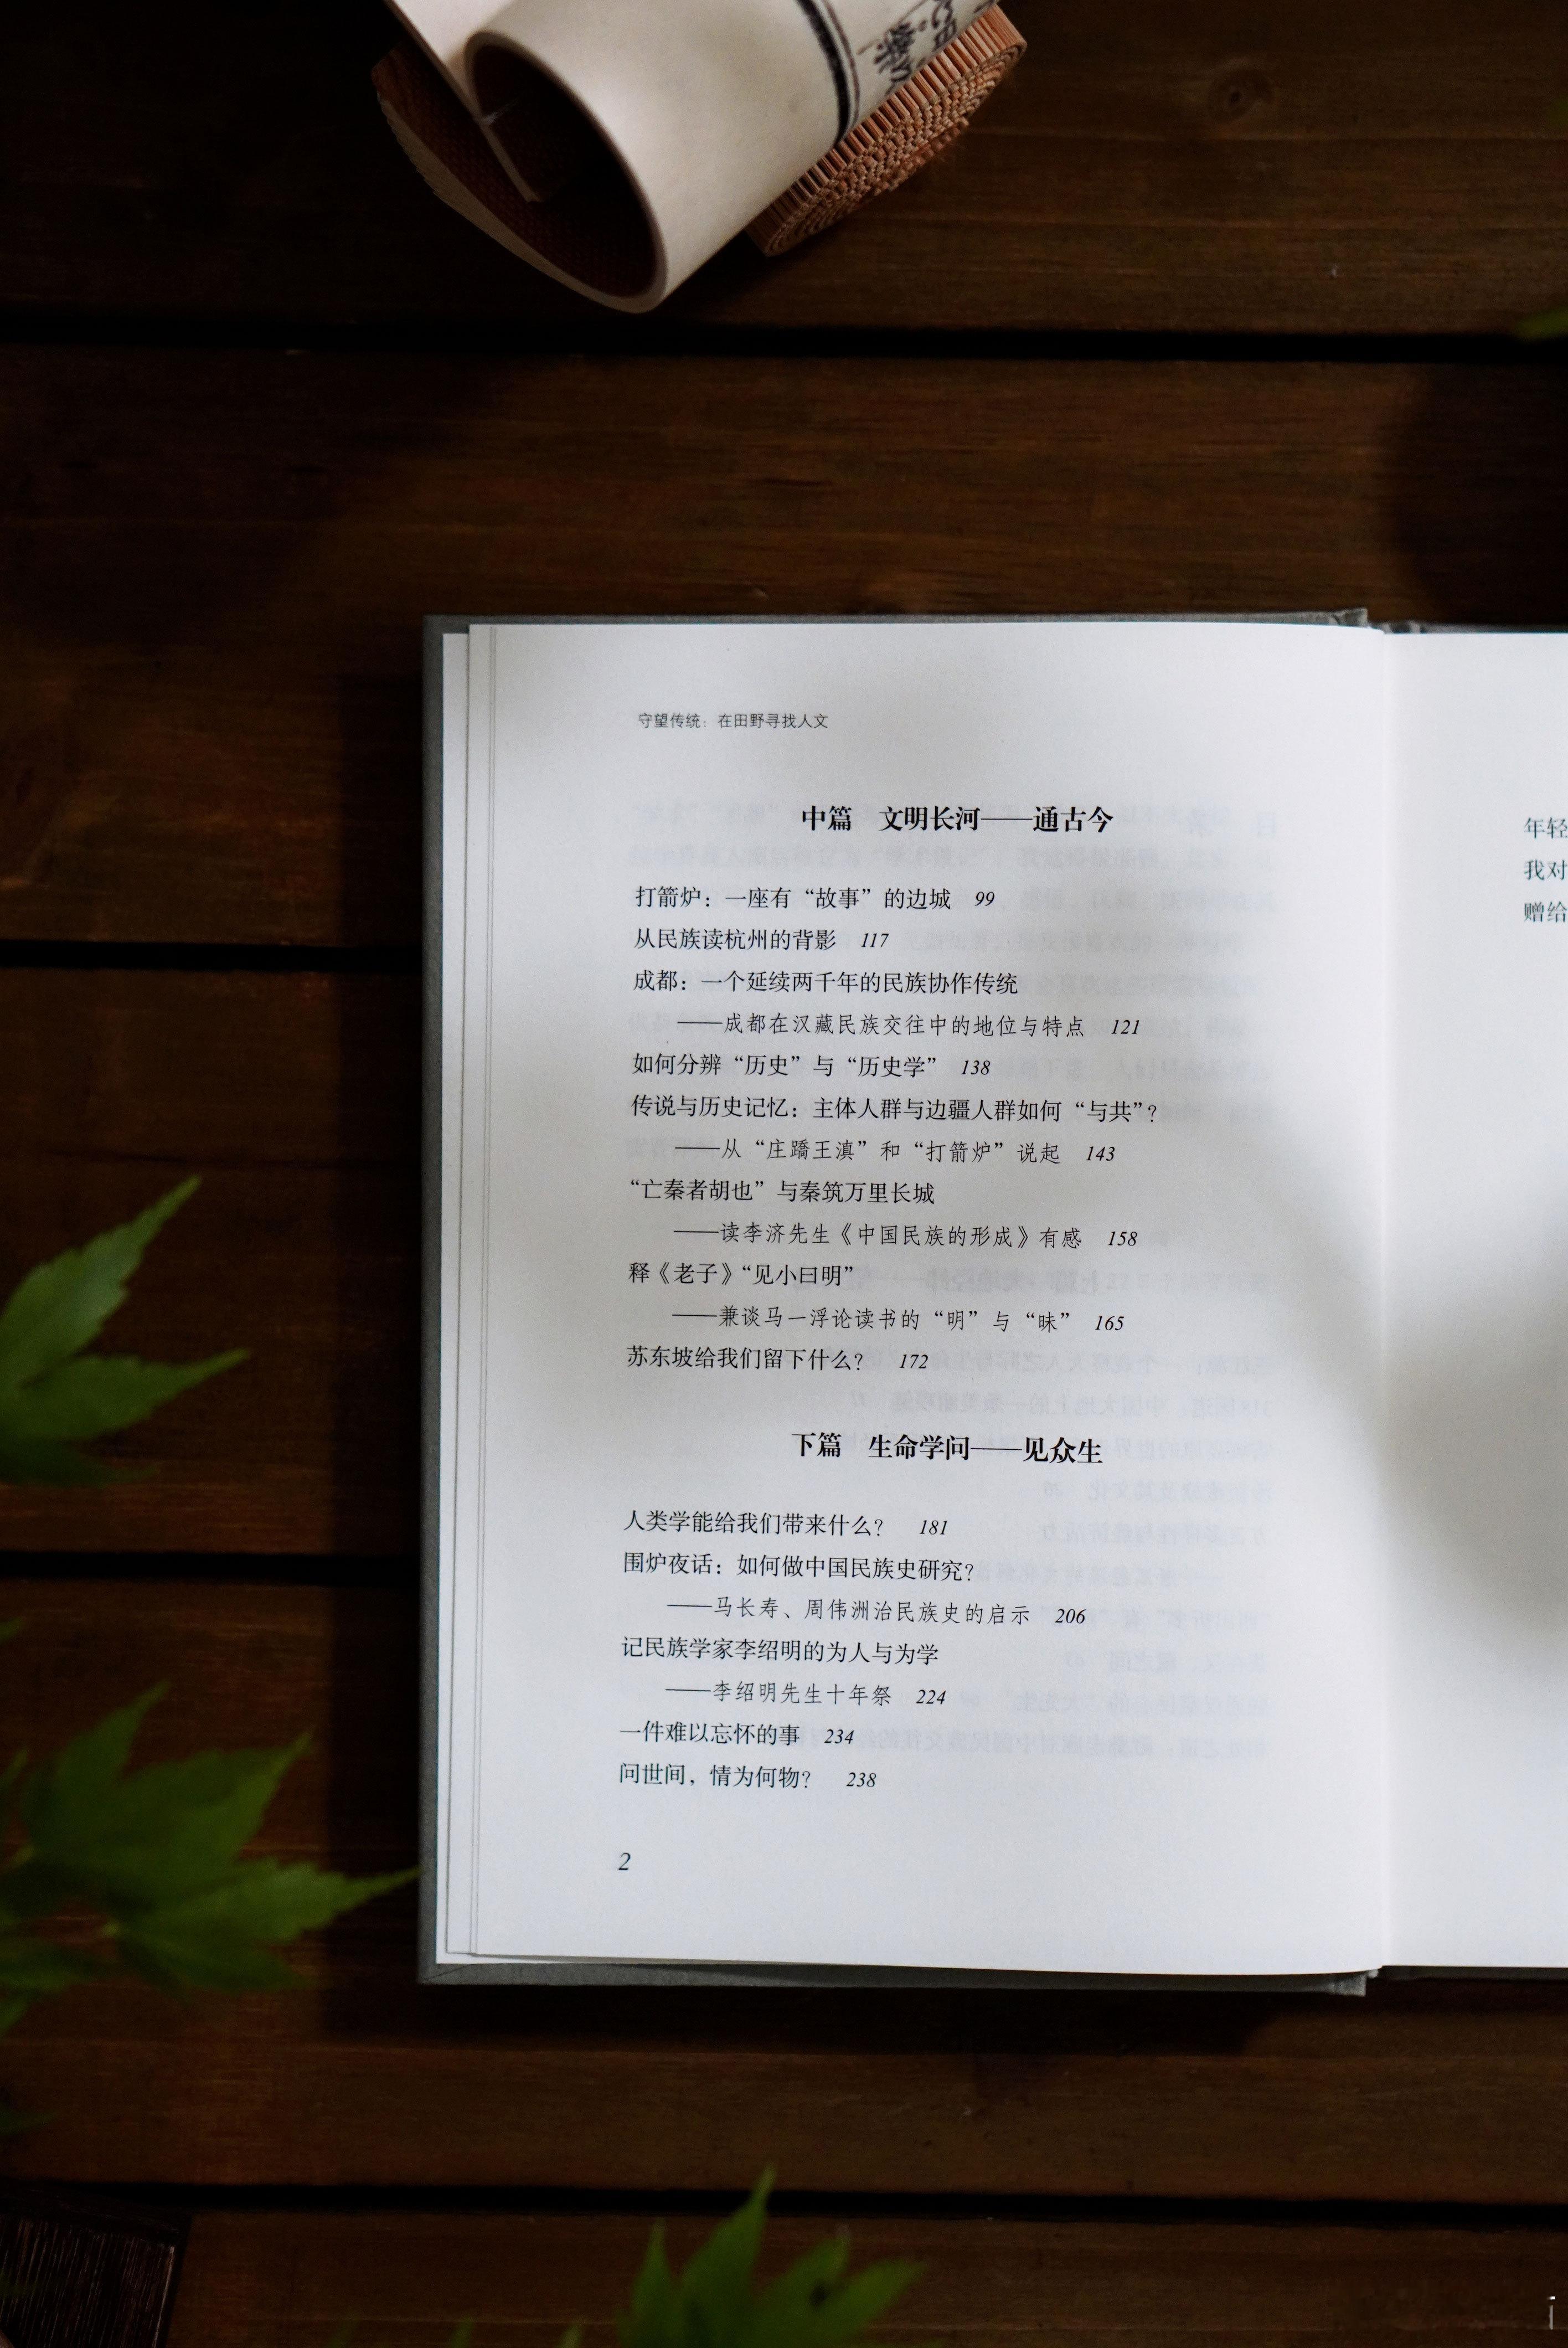 守望传统：在田野寻找人文
中篇 文明长河——通古今
打箭炉：一座有“故事”的边城 99
从民族读杭州的背影 117
成都：一个延续两千年的民族协作传统
——成都在汉藏民族交往中的地位与特点 121
如何分辨“历史”与“历史学” 138
传说与历史记忆：主体人群与边疆人群如何“与共”？
——从“庄蹻王滇”和“打箭炉”说起 143
“亡秦者胡也”与秦筑万里长城
——读李济先生《中国民族的形成》有感 158
释《老子》“见小曰明”
——兼谈马一浮论读书的“明”与“昧” 165
苏东坡给我们留下什么？ 172
下篇 生命学问——见众生
人类学能给我们带来什么？ 181
围炉夜话：如何做中国民族史研究？
——马长寿、周伟洲治民族史的启示 206
记民族学家李绍明的为人与为学
——李绍明先生十年祭 224
一件难以忘怀的事 234
问世间，情为何物？ 238
2
年轻
我对
赠给